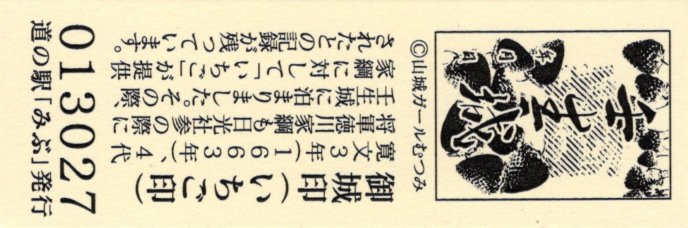 壬生城
©山城ガールむつみ
御城印(いちご印)
寛文3年(1663年)、4代
将軍徳川家綱も日光社参の際に
壬生城に泊まりました。その際、
家綱に対して「いちご」が提供
されたとの記録が残っています。
013027
道の駅「みぶ」発行